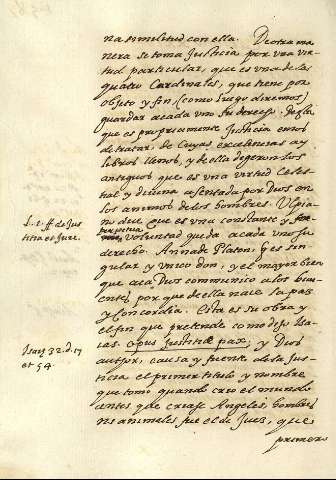 na similitud con ella. De otra ma
nera se toma Justicia por una vir
tud particular, que es una de las
quatro Cardinales, que tiene por
objeto y fin (como luego diremos)
guardar a cada uno su derecho. Desta
que es propriamente Justicia emos
de tratar, de cuyas excelencias ay
libros llenos, y de ella digeron los
antiguos que es una virtud celes
tial y divina asentada por Dios en
los animos de los hombres. Ulpia
L. 1. ff de Jus
titia et Jure.
no dice que es una constante y
perpetua
voluntad que da a cada uno su
derecho. Añade Platon, q es sin
gular y unico don, y el mayor bien
que acá Dios communicó a los bi
entes, por que de ella nace la paz
y concordia. Esta es su obra y
el fin que pretende como dijo Isa
Isay 32. d. 17
et 54.
ias. Opus Justitiæ pax, y Dios
autor, causa y fuente de la Jus
ticia el primer titulo y nombre
que tomo quando crio el mundo
antes que criase Angeles, hombres
ni animales fue el de Juez, que
primero